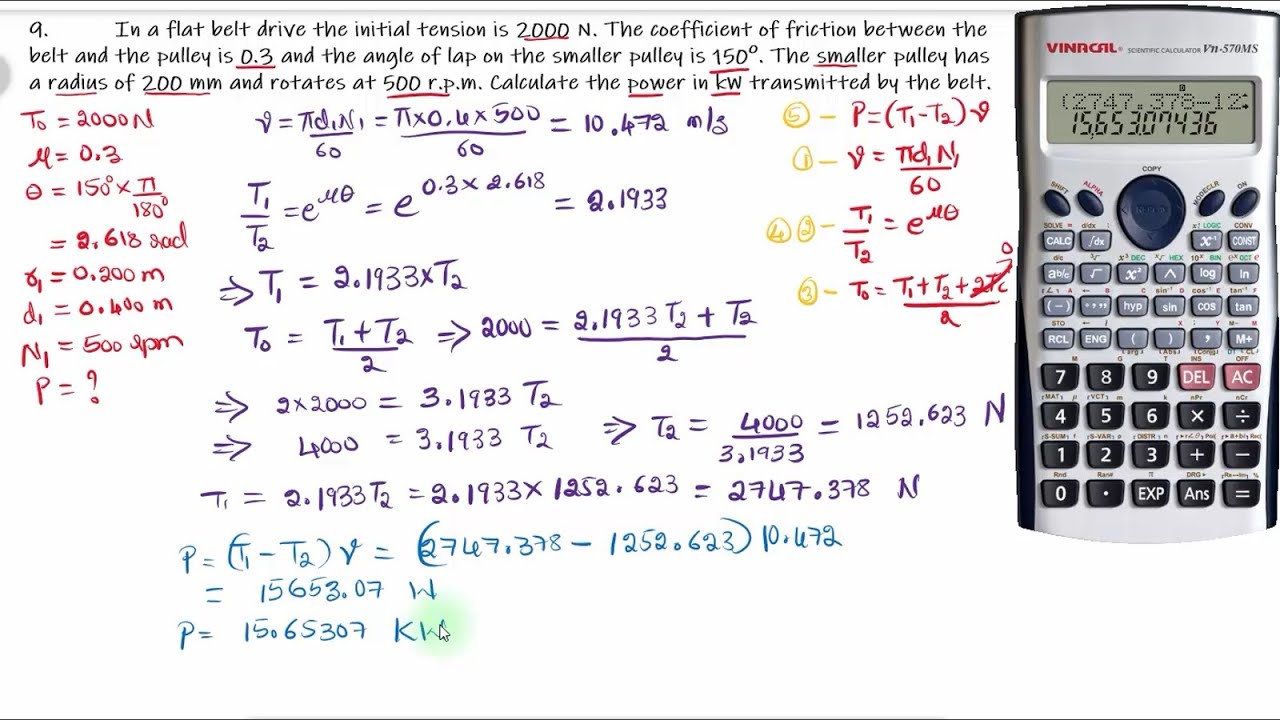 9. In a flat belt drive the initial tension is 2000 N. The coefficient of friction between the
belt and the pulley is 0.3 and the angle of lap on the smaller pulley is 150°. The smaller pulley has
a radius of 200 mm and rotates at 500 r.p.m. Calculate the power in kW transmitted by the belt.
T₀ = 2000 N
μ = 0.3
θ = 150° × π/180°
= 2.618 rad
r₁ = 0.200 m
d₁ = 0.400 m
N₁ = 500 rpm
P = ?
v = πd₁N₁/60 = π×0.4×500/60 = 10.472 m/s
T₁/T₂ = e^μθ = e^0.3×2.618 = 2.1933
⇒ T₁ = 2.1933×T₂
T₀ = T₁+T₂/2 ⇒ 2000 = 2.1933T₂+T₂/2
⇒ 2×2000 = 3.1933 T₂
⇒ 4000 = 3.1933 T₂ ⇒ T₂ = 4000/3.1933 = 1252.623 N
T₁ = 2.1933T₂ = 2.1933×1252.623 = 2747.378 N
P = (T₁-T₂)v = (2747.378 - 1252.623) 10.472
= 15653.07 W
P = 15.65307 KW
⑤ - P=(T₁-T₂)v
① - v = πd₁N₁/60
④ ② - T₁/T₂ = e^μθ
③ - T₀ = T₁+T₂+2Tc/2
0
VINACAL SCIENTIFIC CALCULATOR Vn-570MS
(2747.378-12
15,653.07436
COPY
SHIFT ALPHA MODE CLR ON
CALC ∫dx x⁻¹ CONST
ab/c √ x² ^ log ln
(-) °’” hyp sin cos tan
RCL ENG ( ) , M+
7 8 9 DEL AC
4 5 6 × ÷
1 2 3 + −
0 . EXP Ans =